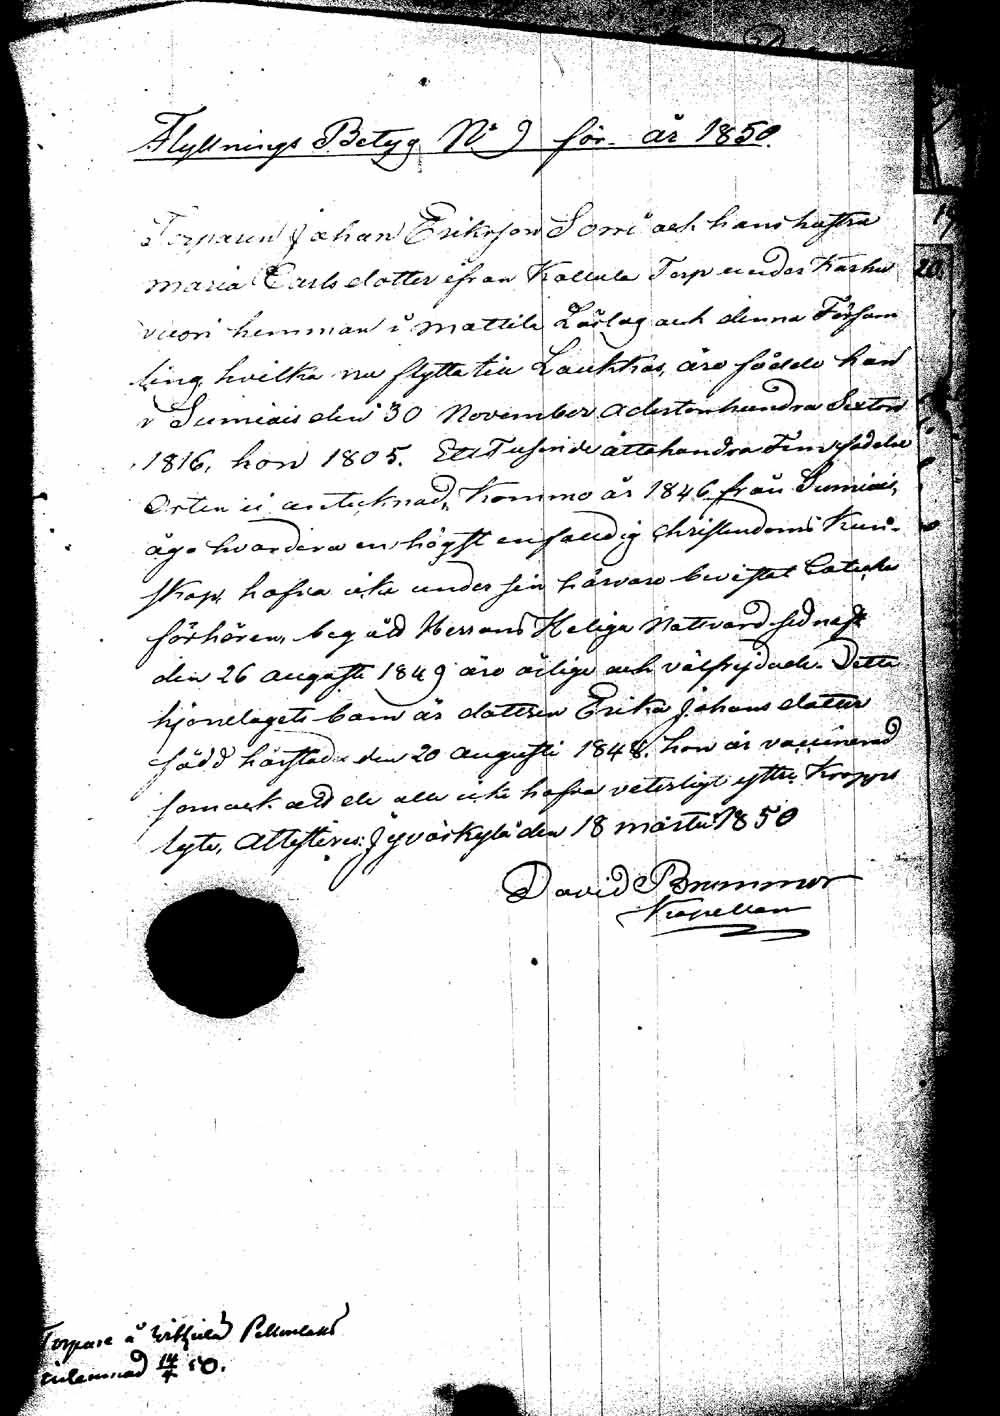 Flyttnings Betyg No 9 för år 1850.
Torparen Johan Eriksson Sorri och hans hustru
Maria Carlsdotter ifrån Kallula Torp under Karhu
vuori hemman i Mattila Läslag och denna Försam
ling, hvilka nu flytta till Laukkas, äro födde han
i Sumiais den 30 November Adertonhundra Sexton
1816, hon 1805. Ett Tusende åttahundra Fem födelse
Orten ei antecknad, Kommo år 1846 från Sumiais,
äga hvardera en högst enfaldig Christendoms Kun-
skap, hafva icke under sin härvaro bevistat Cateche
förhören, begått Herrans Heliga Nattvard sednast
den 26 Augusti 1849 äro ärlige och välfrejdade. Detta
hjonelagets barn är dottren Erika Johansdotter
född härstädes den 20 Augusti 1848. hon är vaccinerad
som ock de alla icke hafva veterligt yttre Kropps
lyte, Attesteras: Jyväskylä den 18 Martii 1850
David Brummer
Kapellan
Torpare å
inlemnad 14/4 50.
20